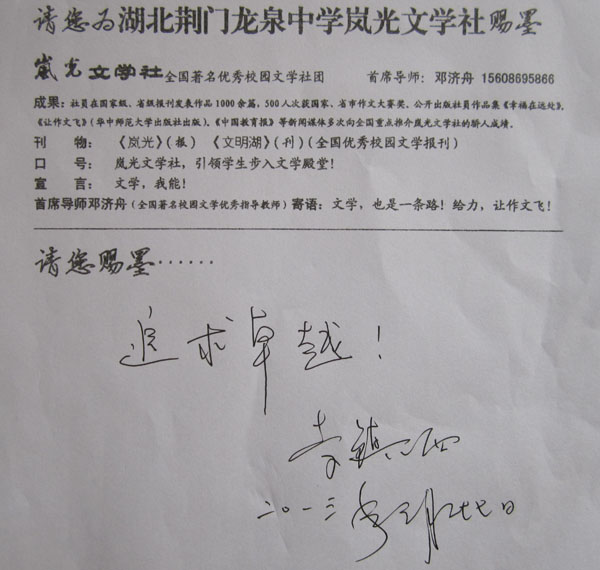 请您为湖北荆门龙泉中学岚光文学社赐墨
岚光文学社全国著名优秀校园文学社团 首席导师：邓济舟 15608695866
成果：社员在国家级、省级报刊发表作品1000余篇，500人次获国家、省市作文大赛奖。公开出版社员作品集《幸福在远处》、
《让作文飞》（华中师范大学出版社出版）。《中国教育报》等新闻媒体多次向全国重点推介岚光文学社的骄人成绩。
刊 物：《岚光》（报）《文明湖》（刊）（全国优秀校园文学报刊）
口 号：岚光文学社，引领学生步入文学殿堂！
宣 言：文学，我能！
首席导师邓济舟（全国著名校园文学优秀指导教师）寄语：文学，也是一条路！给力，让作文飞！
请您赐墨······
追求卓越！
李镇西
二〇一三年 月 日